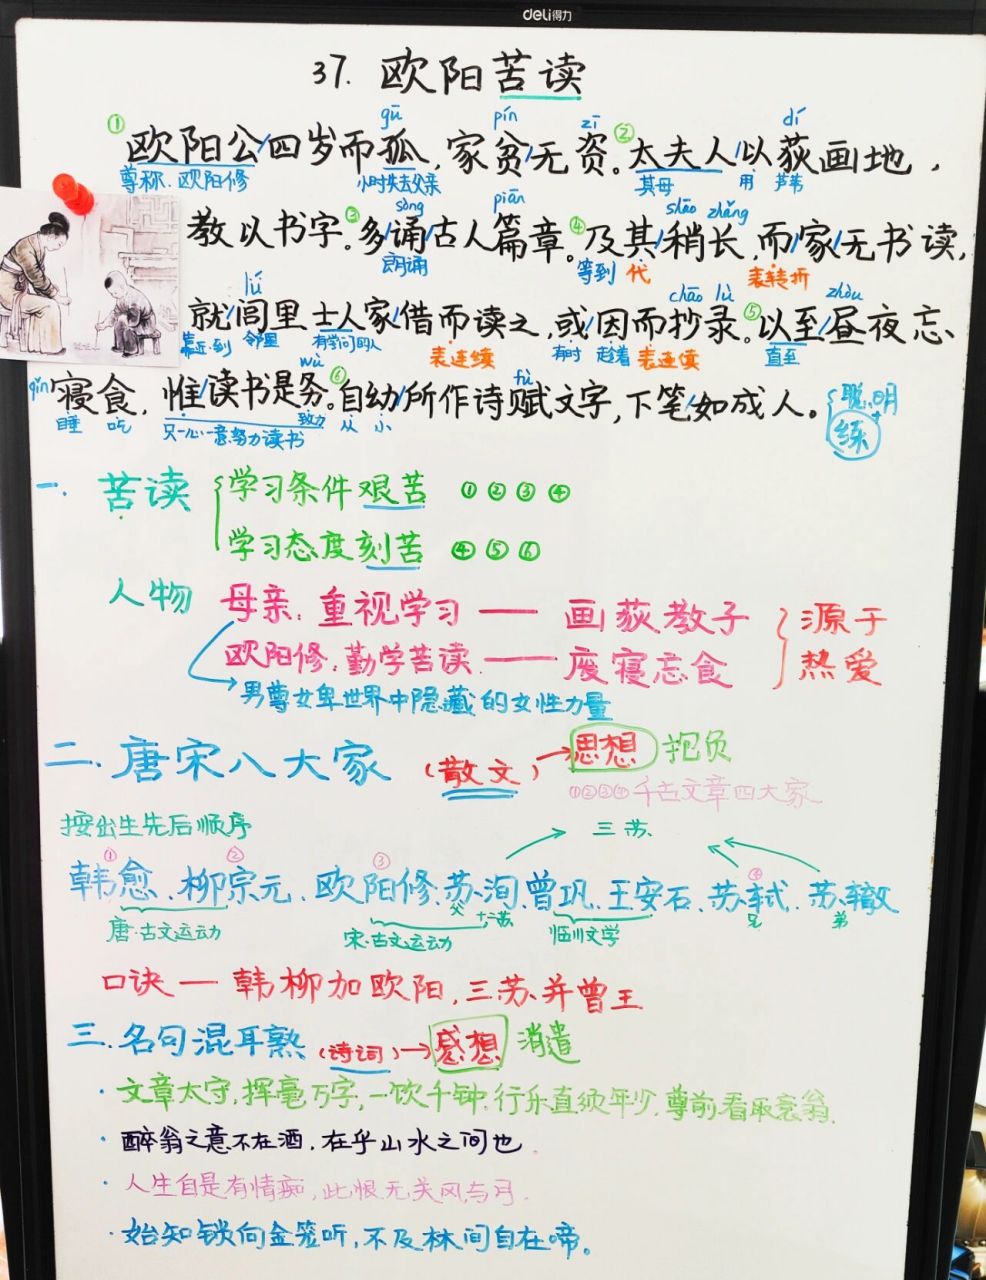 deli得力
37. 欧阳苦读
gū pín zī dí
①欧阳公/四岁而孤,家贫/无资。②太夫人/以荻画地,
尊称:欧阳修 小时失去父亲 其母 用 芦苇
sòng piān shāo zhǎng
教以书字。③多/诵/古人篇章。④及其/稍长,而/家/无书读,
朗诵 等到 代 表转折
lǘ chāo lù zhòu
就/闾里士人家/借而读之,或/因而抄录。⑤以至/昼夜忘
靠近·到 邻里 有学问的人 表连续 有时 趁着 表连续 直至
qǐn wù fù
寝食,惟/读书是务。⑥自幼/所作诗赋文字,下笔/如成人。
睡 吃 只一心一意努力读书 致力 从 小
聪明
+
练
一. 苦读 学习条件艰苦 ①②③④
学习态度刻苦 ④⑤⑥
人物 母亲:重视学习 — 画荻教子
欧阳修:勤学苦读 — 废寝忘食
源于
热爱
男尊女卑世界中隐藏的女性力量
二.唐宋八大家 (散文)→思想 抱负
①②③④千古文章四大家
按出生先后顺序 三苏
① ② ③ ④
韩愈、柳宗元、欧阳修、苏洵、曾巩、王安石、苏轼、苏辙
父 兄 弟
唐·古文运动 宋·古文运动 +三苏 临川文学
口诀 — 韩柳加欧阳,三苏并曾王
三.名句混耳熟 (诗词)→感想 消遣
·文章太守,挥毫万字,一饮千钟.行乐直须年少,尊前看取衰翁.
·醉翁之意不在酒,在乎山水之间也.
·人生自是有情痴,此恨无关风与月.
·始知锁向金笼听,不及林间自在啼。